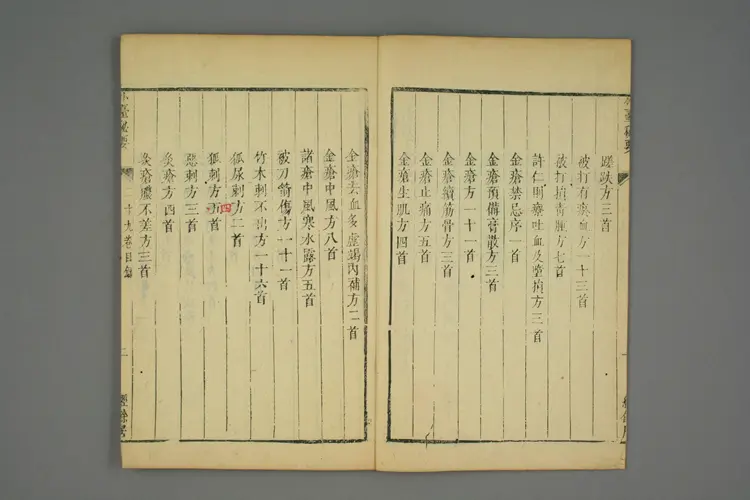 蹉跌方三首
被打有瘀血方一十三首
被打損青腫方七首
許仁則療吐血及墮損方三首
金瘡禁忌序一首
金瘡預備膏散方三首
金瘡方一十一首
金瘡續筋骨方三首
金瘡止痛方五首
金瘡生肌方四首
金瘡去血多虛竭內補方二首
金瘡中風方八首
諸瘡中風寒水露方五首
被刀箭傷方一十一首
竹木刺不出方一十六首
狐尿刺方二首
四
狐刺方五首
惡刺方三首
灸瘡方四首
灸瘡膿不差方三首
外臺秘要 二十九卷目錄 二 經餘居